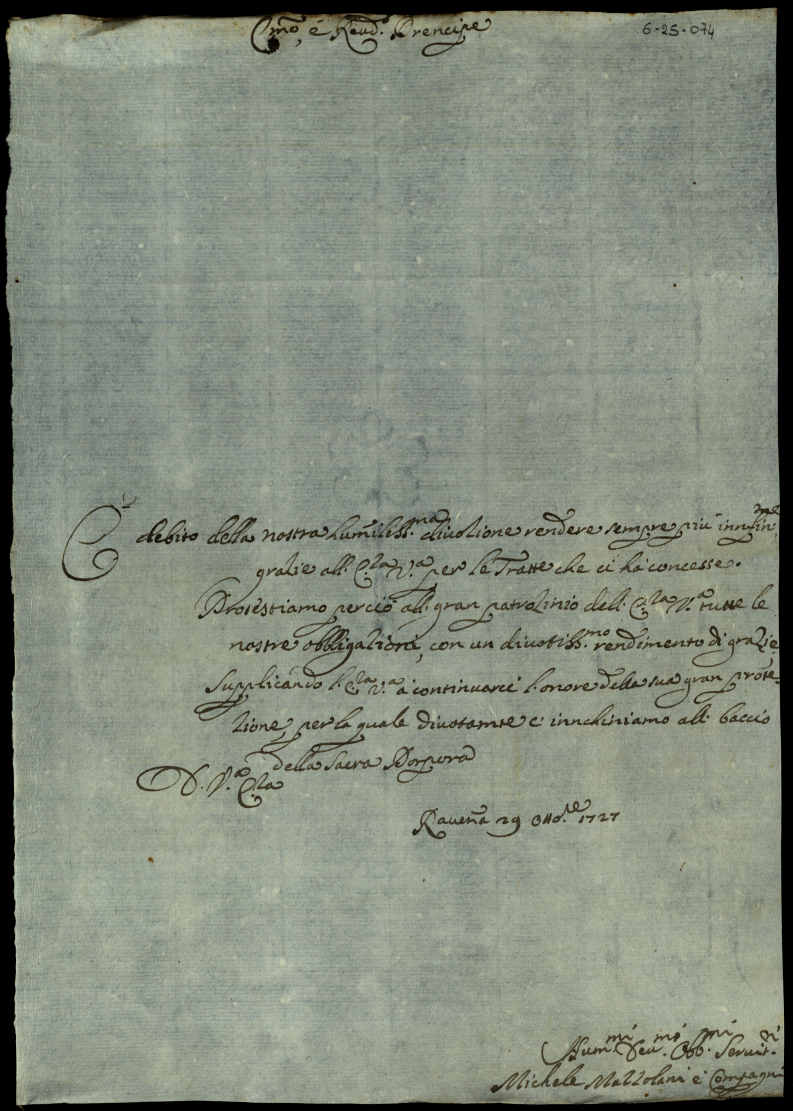 6-25-074
Em̃o, é Reud.º Prencipe
É debito della nostra humiliss.ma diuozione rendere sempre più infin.me
grazie all' E.za V.a per le Tratte che ci hà concesse.
Protestiamo perciò all' gran patrozinio dell' E.za V.a tutte le
nostre obbligazioni, con un diuotiss.mo rendimento di grazie
Supplicando l' E.za V.a à continuarci l'onore della sua gran prote-
zione, per la quale diuotamte c' innchiniamo all' baccio
della Sacra Porpora
D. V.a E.za
Rauena 29 Otto.re 1727
Hum.mi Deu.mi Obb.mi Seruit.ri
Michele Mazzolani é Compagni